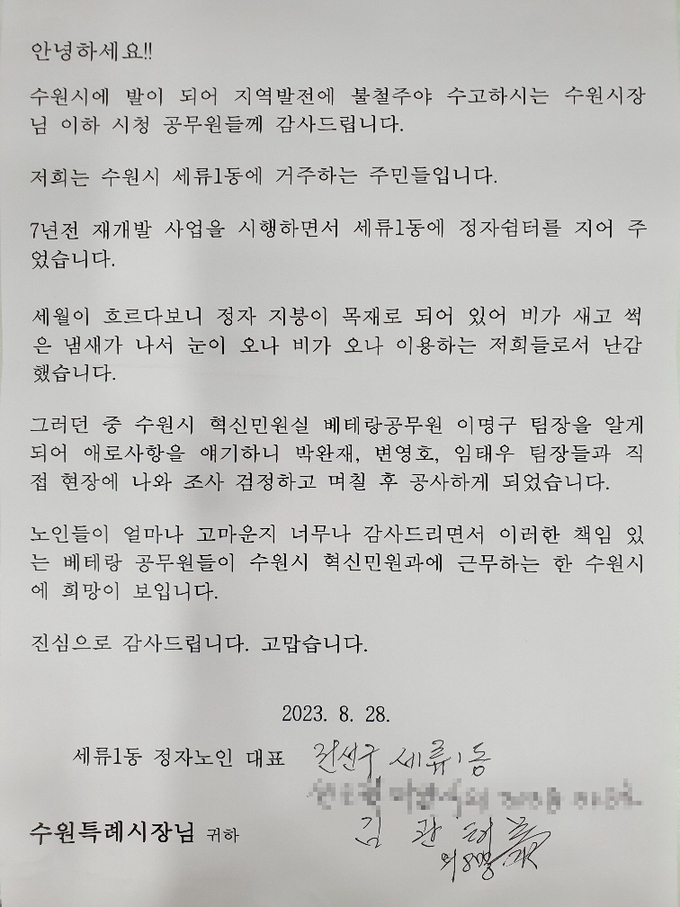 안녕하세요!!
수원시에 발이 되어 지역발전에 불철주야 수고하시는 수원시장
님 이하 시청 공무원들께 감사드립니다.
저희는 수원시 세류1동에 거주하는 주민들입니다.
7년전 재개발 사업을 시행하면서 세류1동에 정자쉼터를 지어 주
었습니다.
세월이 흐르다보니 정자 지붕이 목재로 되어 있어 비가 새고 썩
은 냄새가 나서 눈이 오나 비가 오나 이용하는 저희들로서 난감
했습니다.
그러던 중 수원시 혁신민원실 베테랑공무원 이명구 팀장을 알게
되어 애로사항을 얘기하니 박완재, 변영호, 임태우 팀장들과 직
접 현장에 나와 조사 검정하고 며칠 후 공사하게 되었습니다.
노인들이 얼마나 고마운지 너무나 감사드리면서 이러한 책임 있
는 베테랑 공무원들이 수원시 혁신민원과에 근무하는 한 수원시
에 희망이 보입니다.
진심으로 감사드립니다. 고맙습니다.
2023. 8. 28.
세류1동 정자노인 대표 권선구 세류1동
수원특례시장님 귀하 김 관